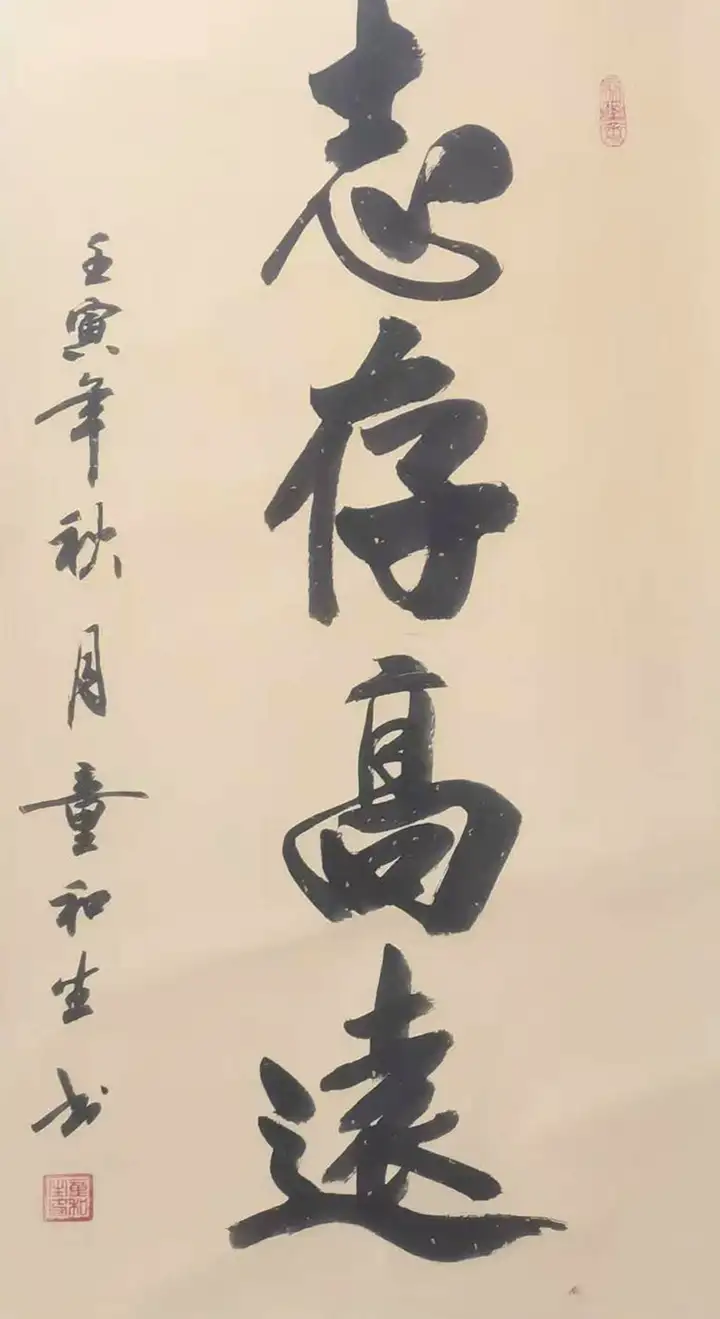 志存高遠
壬寅年秋月童和生书